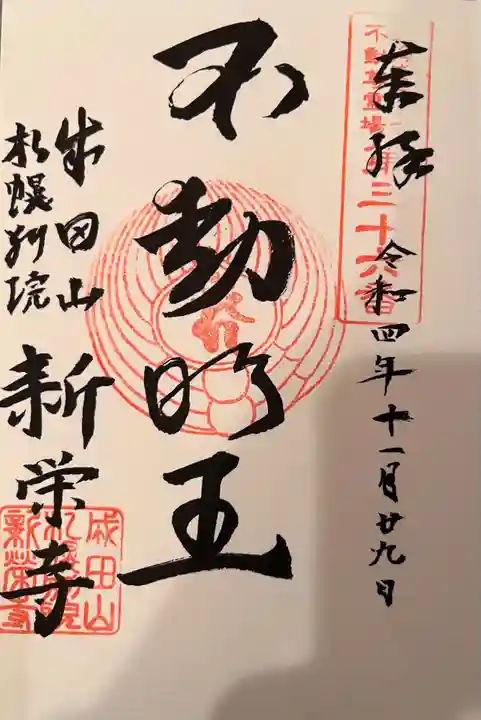 奉拝 令和四年十一月廿九日
不動霊場
第三十六番
不動明王
成田山
札幌別院
新栄寺
成田山
札幌別院
新榮寺